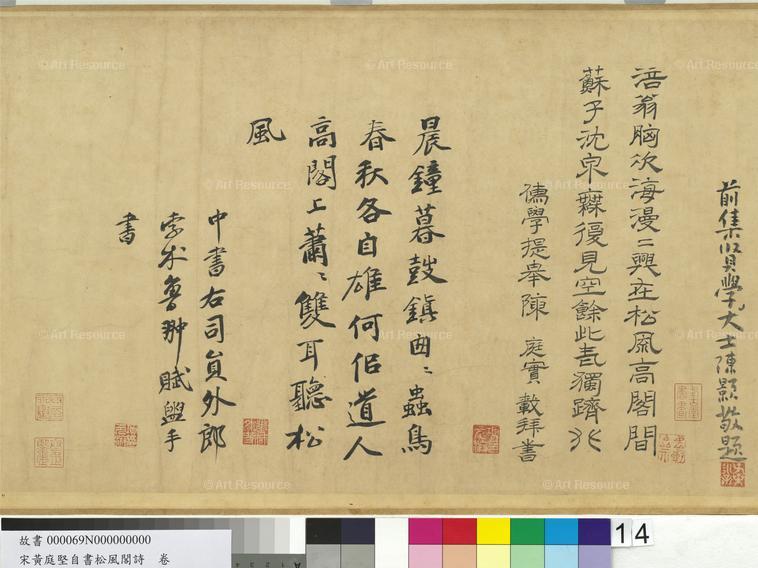 前集賢學大士陳顥敬題
涪翁胸次海漫〻興在松風高閣間
蘇子沈泉無復見空餘此卷獨躋攀
儒學提舉陳庭實載拜書
晨鐘暮鼓鎮囪〻蟲鳥
春秋各自雄何佀道人
高閣上蕭〻雙耳聽松
風
中書右司員外郎
孛朮魯翀賦盥手
書
故書 000069N000000000
宋黃庭堅自書松風閣詩 卷
14
© Art Resource